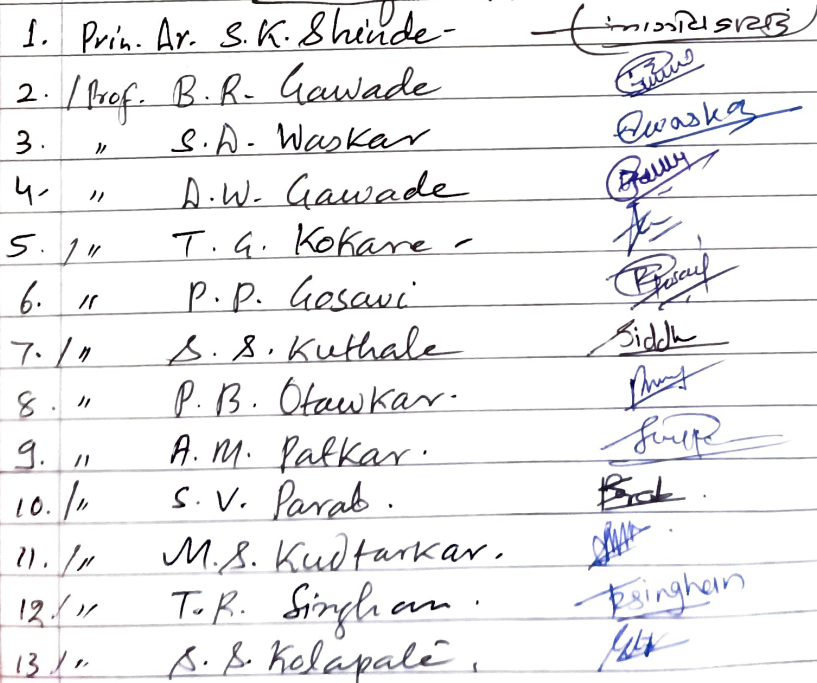 1. Prin. Dr. S.K. Shinde-
2. / Prof. B. R. Gawade
3. " S. D. Waskar Swaskar
4- " D. W. Gawade
5. / " T. G. Kokare -
6. " P. P. Gosavi PPGosavi
7. / " S. S. Kuthale Siddh
8. " P. B. Otawkar.
9. " A. M. Patkar.
10. / " S. V. Parab.
11. / " M. S. Kudtarkar.
12 / " T. R. Singhan. TRsinghan
13 / " S. S. Kolapate.